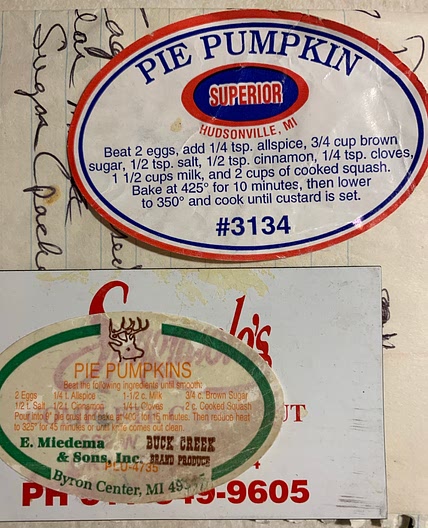 PIE PUMPKIN
SUPERIOR
HUDSONVILLE, MI
Beat 2 eggs, add 1/4 tsp. allspice, 3/4 cup brown
sugar, 1/2 tsp. salt, 1/2 tsp. cinnamon, 1/4 tsp. cloves,
1 1/2 cups milk, and 2 cups of cooked squash.
Bake at 425° for 10 minutes, then lower
to 350° and cook until custard is set.
#3134
Sugar
PIE PUMPKINS
Beat the following ingredients until smooth:
2 Eggs 1/4 t. Allspice 1-1/2 c. Milk 3/4 c. Brown Sugar
1/2 t. Salt 1/2 t. Cinnamon 1/4 t. Cloves 2 c. Cooked Squash
Pour into 9" pie crust and bake at 400° for 15 minutes. Then reduce heat
to 325° for 45 minutes or until knife comes out clean.
E. Miedema BUCK CREEK
& Sons, Inc. BRAND PRODUCE
PLU-4735
Byron Center, MI
PH 9-9605